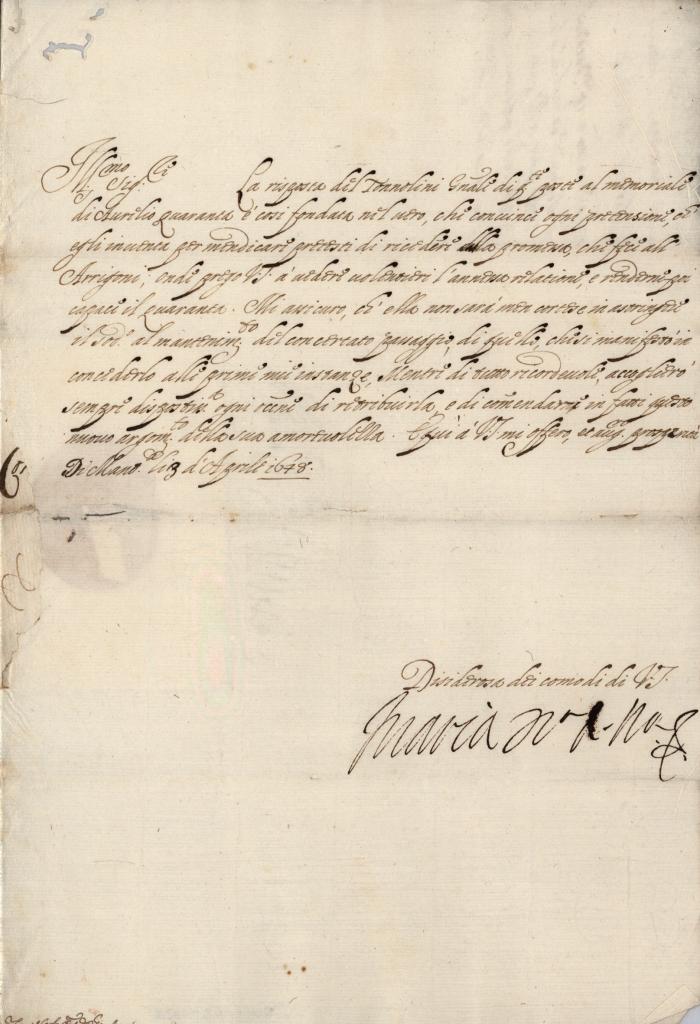 Ill.mo Sig.re La risposta del Tonnolini Gnale di q.te poste al memoriale
di Aurelio quaranta è così fondata nel vero, che convince ogni pretensione, ch'
egli inventa per mendicare pretesti di recedere dalla promessa, che fece all'
Arrigoni; onde prego V.S. à vedere volentieri l'annessa relatione, e renderne poi
capace il quaranta. Mi assicuro, ch'ella non sarà men cortese in astringere
il Sod.o al mantenim.to del concertato passaggio, di quello, che si manifestò in
concederlo alle prime mie instanze, Mentre di tutto ricordevole, accoglierò
sempre dispostiss.a ogni occ.ne di retribuirla, e di comendarne in fatti questo
nuovo argom.to della sua amorevolezza. E quì à V.S. mi offero, et aug.o prosperità
Di Mant.a li 3 d'Aprile 1648.
Desiderosa dei comodi di V.S.
Maria